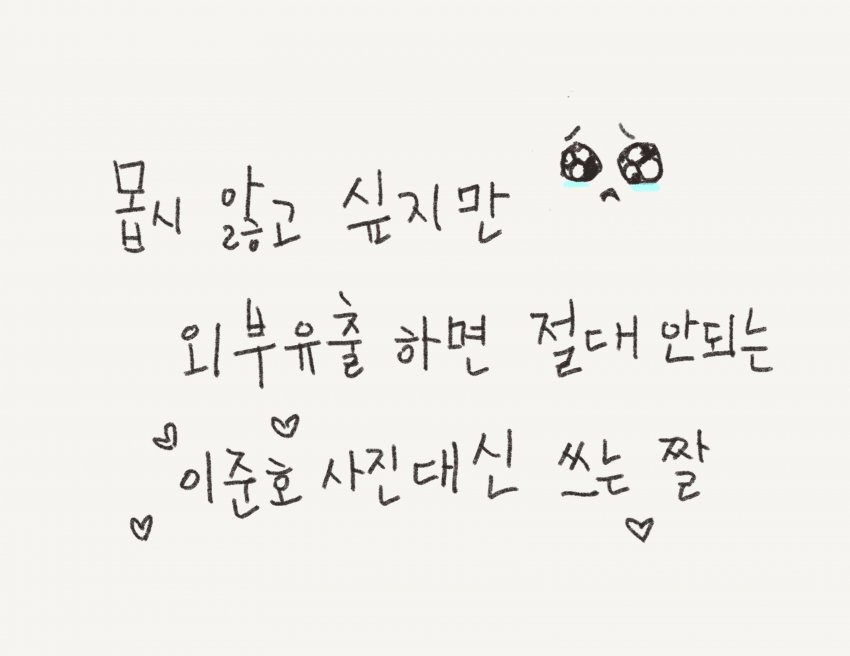 몹시 앓고 싶지만
외부유출 하면 절대 안되는
이준호 사진대신 쓰는 짤